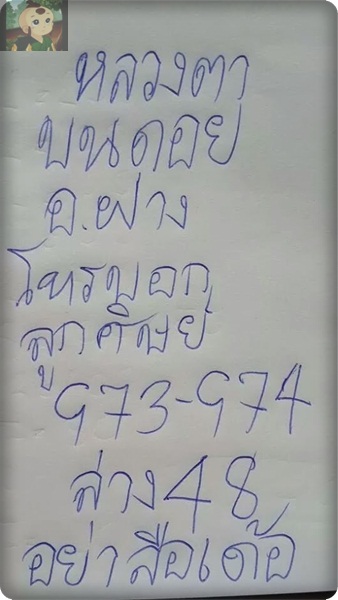 หลวงตา
บนดอย
อ.ฝาง
โทรบอก
ลูกศิษย์
973-974
ล่าง 48
อย่าลือเด้อ